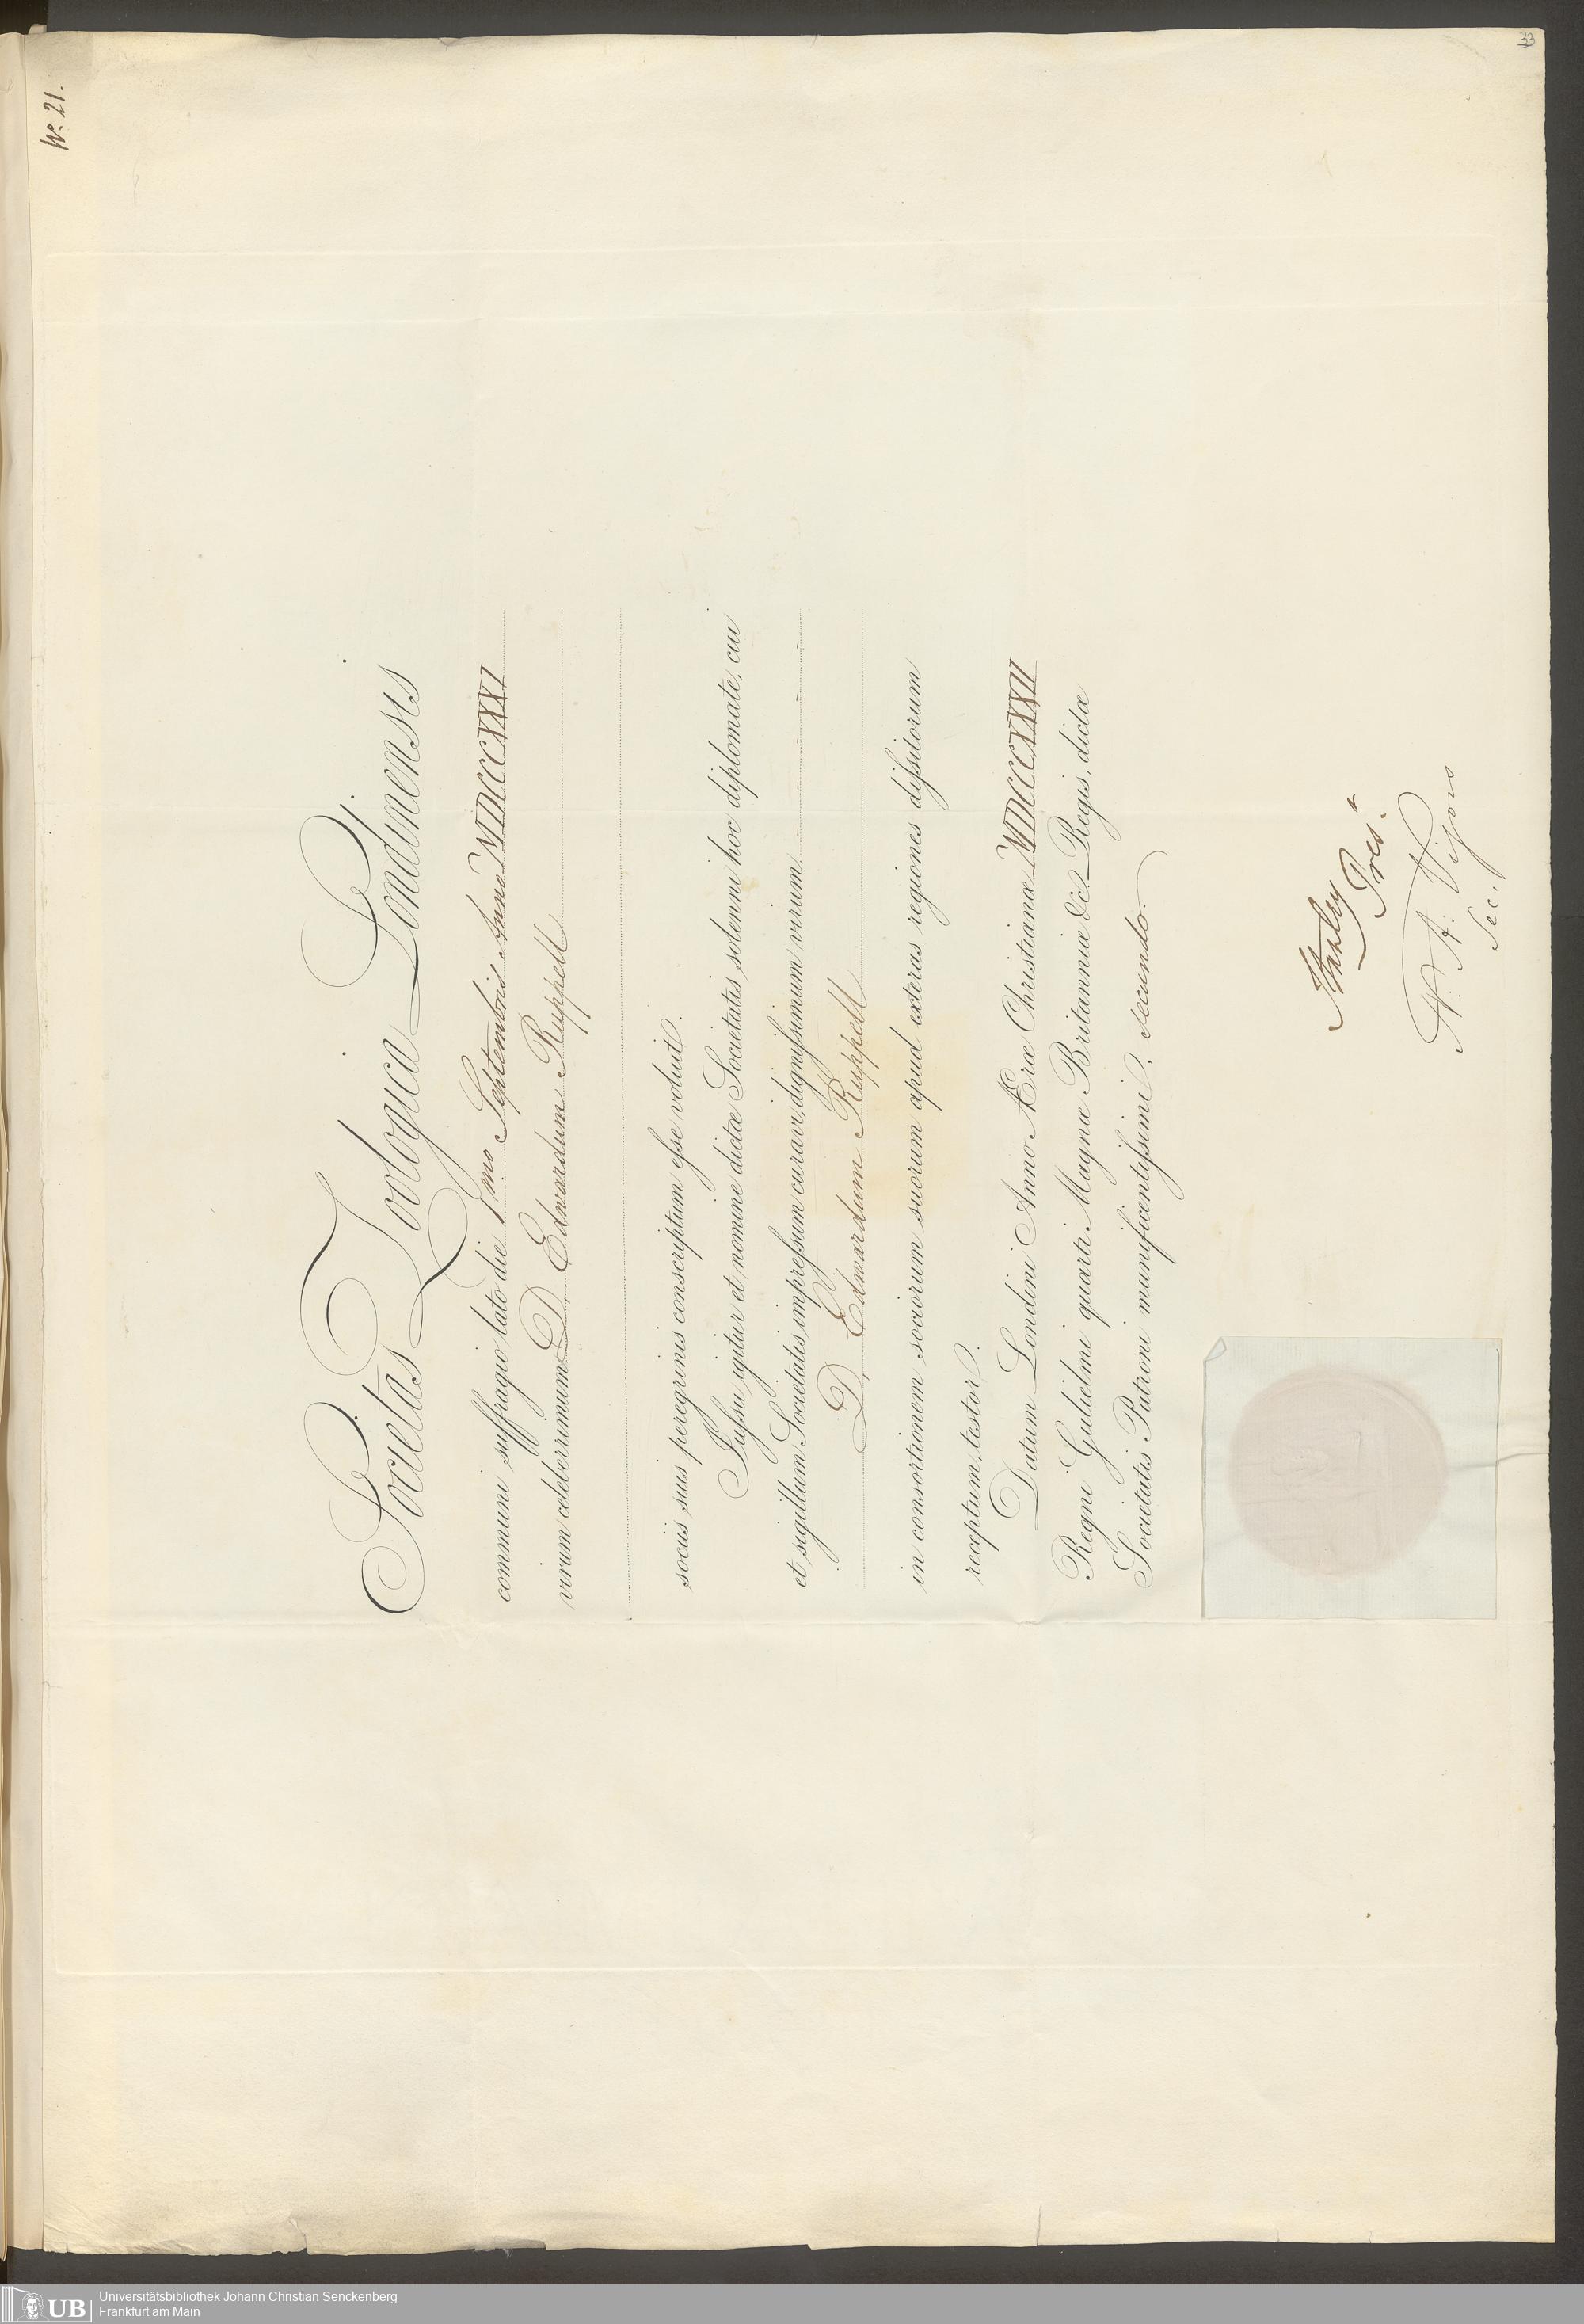 No. 21.
33
Societas Zoologica Londinensis
communi suffragio lato die 1mo Septembris Anno MDCCCXXXI
virum celeberrimum D. Edwardum Ruppell
sociis suis peregrinis conscriptum esse voluit.
Jussu igitur et nomine dictæ Societatis solenni hoc diplomate, cui
et sigillum Societatis impressum curavi, dignissimum virum
D. Edwardum Ruppell
in consortionem sociorum suorum apud exteras regiones dissitorum
receptum, testor.
Datum Londini Anno Æræ Christianæ MDCCCXXXII
Regni Gulielmi quarti Magnæ Britanniæ &c. Regis, dictæ
Societatis Patroni munificentissimi. secundo.
Stanley
Prest
N. A. Vigors
Sec.
UB Universitätsbibliothek Johann Christian Senckenberg
Frankfurt am Main